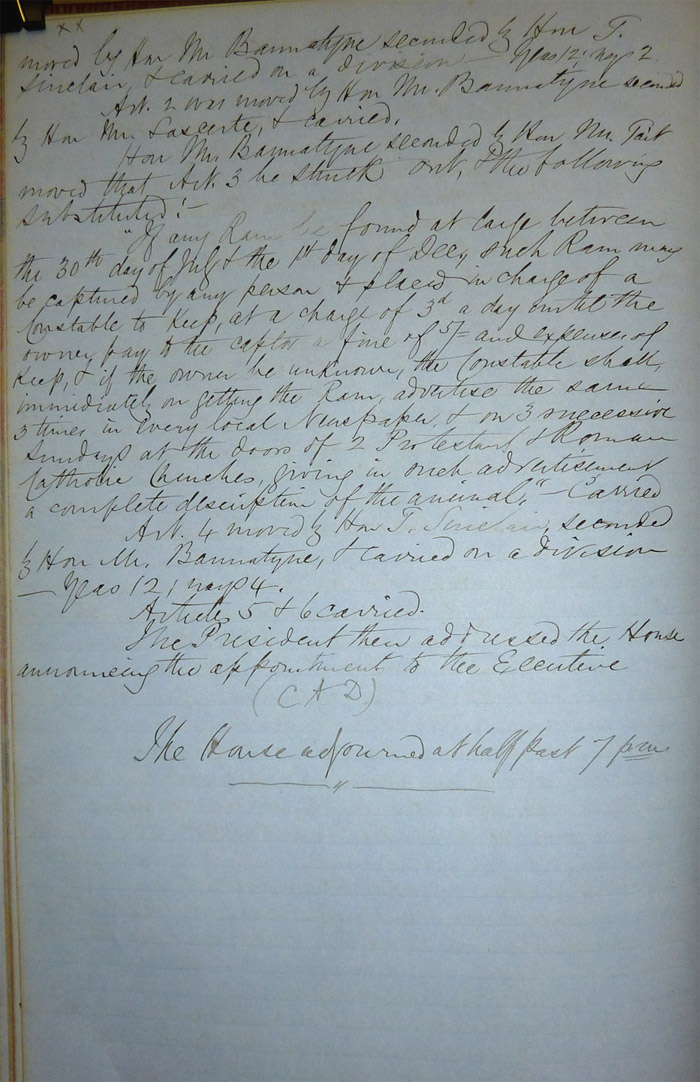 xx
moved by Hon Mr Bannatyne seconded by Hon T.
Sinclair, & carried on a division – Yeas 12; nays 2
Art. 2 was moved by Hon Mr. Bannatyne seconded
by Hon Mr. Lascerte, & carried.
Hon Mr. Bannatyne seconded by Hon Mr. Tait
moved that Art. 3 be struck out, & the following
substituted:–
"If any Ram be found at large between
the 30th day of July & the 1st day of Dec, such Ram may
be captured by any person & placed in charge of a
Constable to keep, at a charge of 3d a day until the
owner pay to the captor a fine of 5/= and expenses of
keep, & if the owner be unknown, the Constable shall,
immediately on getting the Ram, advertise the same
3 times in every local Newspaper, & on 3 successive
Sundays at the doors of 2 Protestant & Roman
Catholic Churches, giving in such advertisement
a complete description of the animal." – Carried
Art. 4 moved by Hon T. Sinclair, seconded
by Hon Mr. Bannatyne, & carried on a division
– Yeas 12; nays 4.
Articles 5 & 6 carried.
The President then addressed the House
announcing the appointment to the Executive
(C A D)
The House adjourned at half past 7 pm